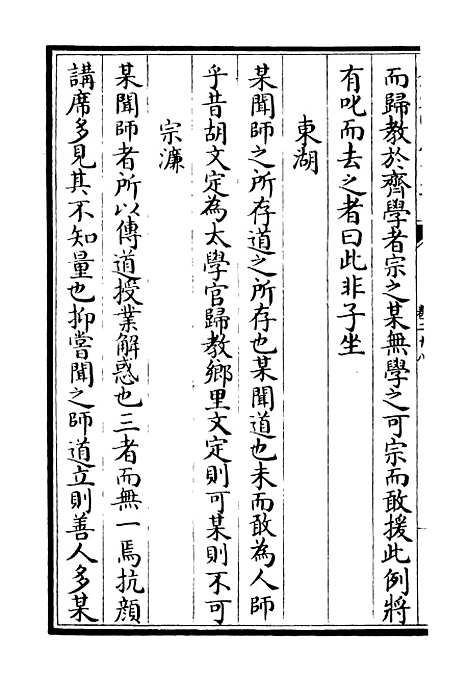 而歸教於齊學者宗之某無學之可宗而敢援此例將
有叱而去之者曰此非子坐
東湖
某聞師之所存道之所存也某聞道也未而敢為人師
乎昔胡文定為太學官歸教鄉里文定則可某則不可
宗濂
某聞師者所以傳道授業解惑也三者而無一焉抗顔
講席多見其不知量也抑嘗聞之師道立則善人多某
卷二十八